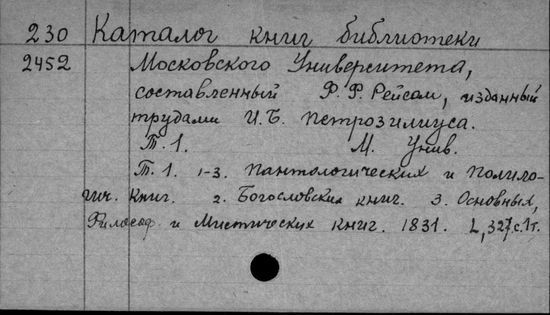 230 Каталог книг библиотеки
2452 Московского Университета,
составленный Ф. Ф. Рейсом, изданный
трудами И. Б. Петрозилиуса.
Т. 1. М. Унив.
Т. 1. 1-3. Пантологических и Полило-
гич. Книг. 2. Богословских книг. 3. Основных,
Философ. и Мистических книг. 1831. L, 327 с. 1 т.